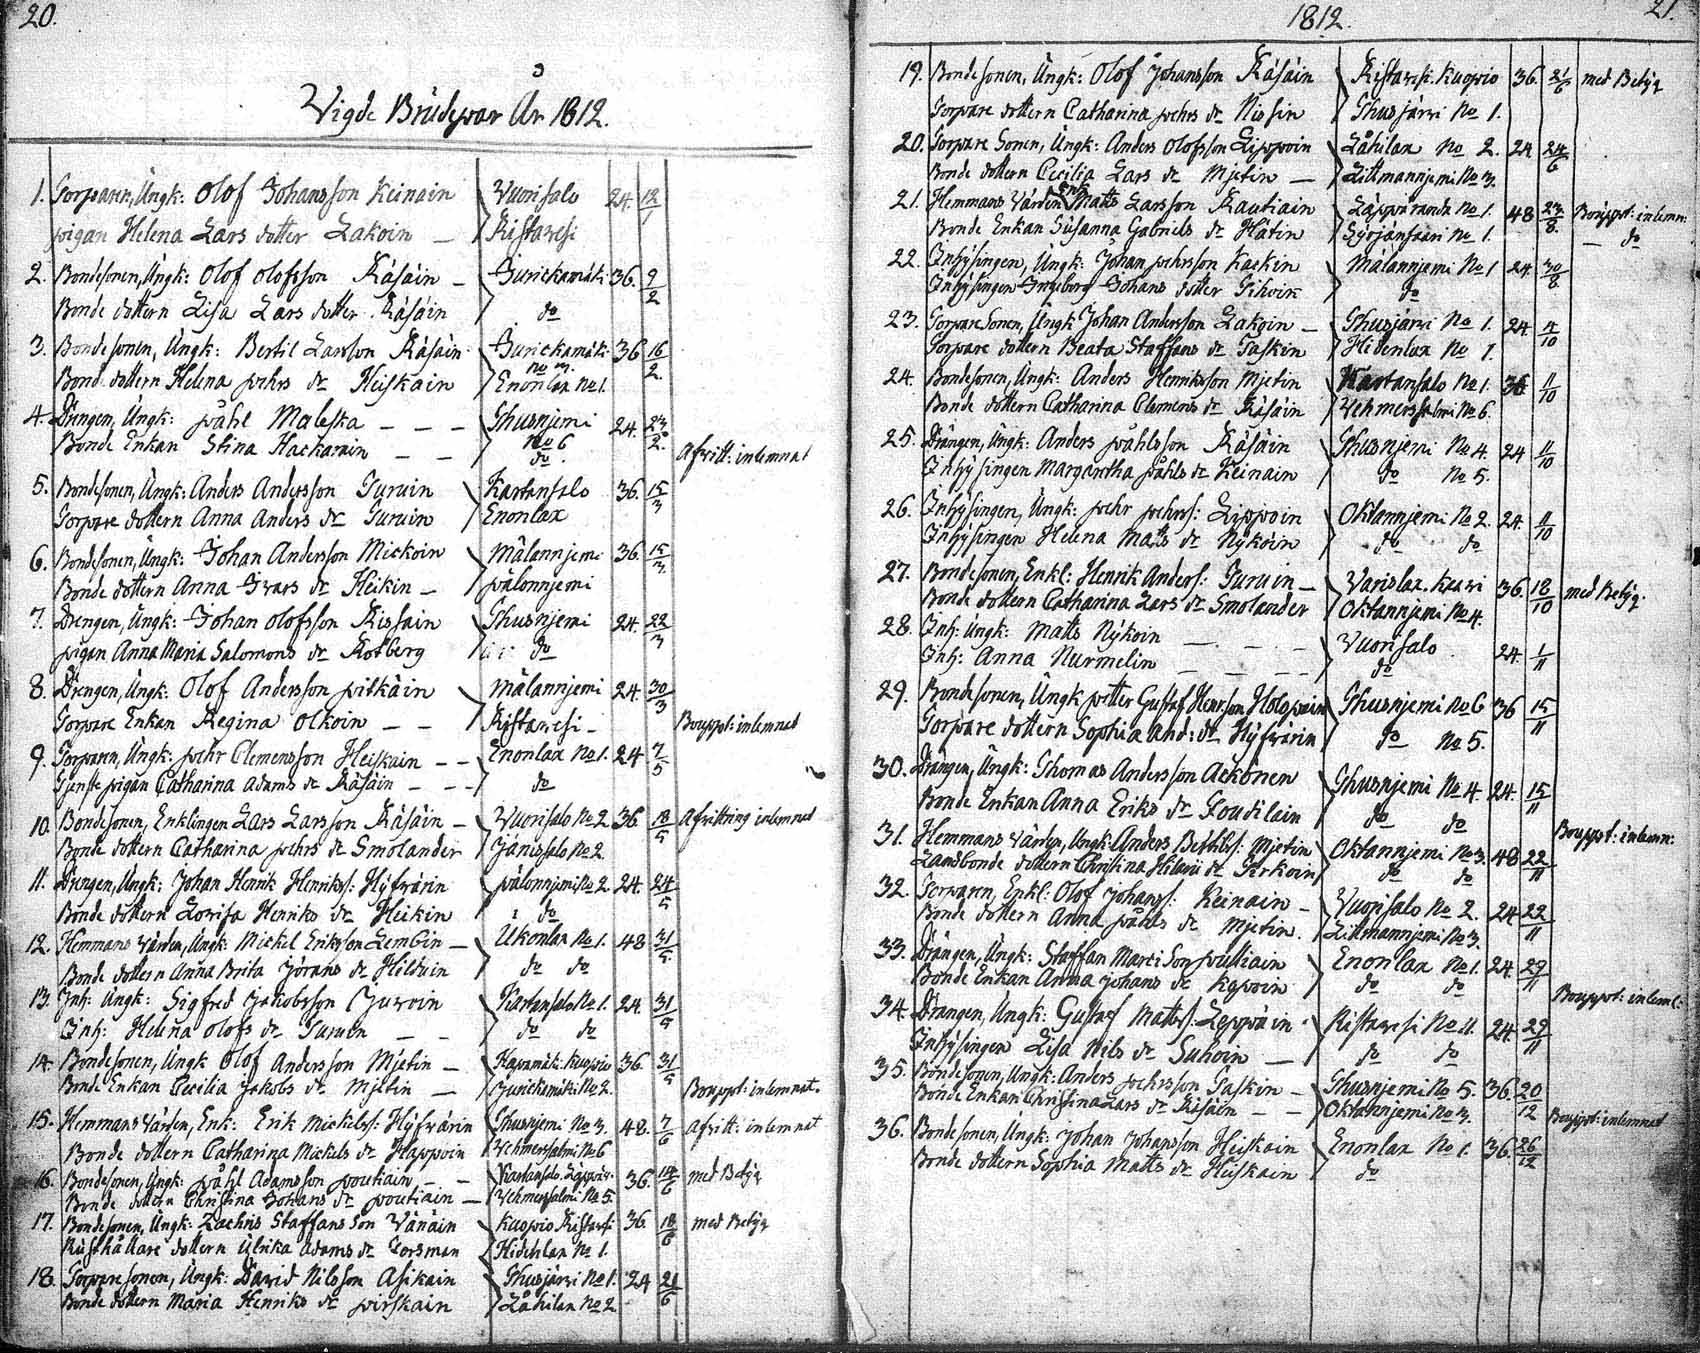 20.
Vigde Brudepar År 1812.
1. Torparen, Ungk: Olof Johansson Keinäin Vuorisalo 24. 12/1
pigan Helena Lars dotter Lakoin — Ristavesi
2. Bondesonen, Ungk: Olof Olofsson Räsäin — Jurickamäki 36. 9/2
Bonde dottern Lisa Lars dotter Räsäin do
3. Bondesonen, Ungk: Bertil Larsson Räsäin Jurickamäki No 3. 36 16/2.
Bond dottern Helena pehrs dr Heiskain Enonlax No 1.
4. Drengen, Ungk: påhl Maleska — — — Thusnjemi No 6 24. 23/2.
Bonde Enkan Stina Hackarain — — do. Afvitt: inlemnat
5. Bondesonen, Ungk: Anders Andersson Turuin Kartansalo 36. 15/3
Torpare dottern Anna Anders dr Turuin Enonlax
6. Bondesonen, Ungk: Johan Andersson Mickoin Mälannjemi 36. 15/3.
Bonde dottern Anna Ivars dr Heikin — pålonnjemi
7. Drengen, Ungk: Johan Olofsson Rissain Thusnjemi 24. 22/3
pigan Anna Maria Salomons dr Rotberg do
8. Drengen, Ungk: Olof Andersson pitkäin Mälannjemi 24. 30/3
Torpare Enkan Regina Olkoin — — Ristavesi — Bouppt: inlemnat
9. Torparen, Ungk: pehr Clemensson Heiskain — — Enonlax No 1. 24 7/5
Tjenste pigan Catharina Adams dr Räsäin — — — do
10. Bondesonen, Enklingen Lars Larsson Räsäin — Vuorisalo No 2 36. 18/5 Afvittring inlemnat
Bonde dottern Catharina pehrs dr Smolander Jänissalo No 2.
11. Drengen, Ungk: Johan Henrik Henrikss: Hyfvärin pålonnjemi No 2. 24. 24/5
Bonde dottern Lovisa Henriks dr Heikin do
12. Hemmans Värden, Ungk: Mickel Eriksson Lembin — Ukonlax No 1. 48 31/5.
Bonde dottern Anna Brita Jörans dr Hilduin do do
13. Inh: Ungk: Sigfred Jakobsson Juvoin Kartansalo No 1. 24. 31/5
Inh: Helena Olofs dr Turuin — — do do
14. Bondesonen, Ungk Olof Andersson Mjetin — Haparmäki Kuopio 36. 31/5
Bonde Enkan Cecilia Jakobs dr Mjetin — Jurickamäki No 2. Bouppt: inlemnat.
15. Hemmans Värden, Enk: Erik Mickelss: Hyfvärin Thusnjemi No 3. 48. 7/6 Afvitt: inlemnat
Bonde dottern Catharina Mickels dr Happoin Vehmersalmi No 6
16. Bondesonen, Ungk: påhl Adamsson poutiain — — Kartansalo. Leppävi: 36. 14/6 med Betyg
Bonde dottern Christina Johans dr poutiain — Vehmersalmi No 5.
17. Bondesonen, Ungk: Zachris Staffansson Vänäin Kuopio Ristavesi 36. 18/6 med Betyg
Rusthållare dottern Ulrika Adams dr Forsman Hidenlax No 1.
18. Torparesonen, Ungk: David Nilsson Asikain Thusjärvi No 1. 24 21/6
Bonde dottern Maria Henriks dr pirskain Låhilax No 2.
1812. 21.
19. Bondesonen, Ungk: Olof Johansson Räsäin Ristavesi. Kuopio 36. 21/6 med Betyg
Torpare dottern Catharina pehrs dr Nissin Thusjärvi No 1.
20. Torpare Sonen, Ungk: Anders Olofsson Lippoin Låhilax No 2. 24 24/6
Bonde dottern Cecilia Lars dr Mjetin — Littmannjemi No 3.
21. Hemmans Värden Enk Matts Larsson Rautiain Läppäranda No 1. 48 23/8. Bouppt: inlemn:
Bonde Enkan Susanna Gabriels dr Hätin Syrjänsaari No 1. — do
22. Inhysingen, Ungk: Johan pehrsson Kaekin Mälannjemi No 1 24. 30/8
Inhysingen Ingeborg Johans dotter Tihoin do
23. Torpare Sonen, Ungk Johan Andersson Lakoin — Thusjärvi No 1. 24. 4/10
Torpare dottern Beata Staffans dr Taskin Hidenlax No 1.
24. Bondesonen, Ungk: Anders Henriksson Mjetin Kartansalo No 1. 36 11/10
Bonde dottern Catharina Clemens dr Räsäin Vehmersalmi No 6.
25. Drängen, Ungk: Anders påhlsson Räsäin Thusnjemi No 4. 24 11/10
Inhysingen Margaretha påhls dr Keinäin do No 5.
26. Inhysingen, Ungk: pehr pehrss: Lippoin Oktannjemi No 2. 24. 11/10
Inhysingen Helena Matts dr Nykoin do do
27. Bondesonen, Enkl: Henrik Anderss: Turuin — Varislax. Kuavi 36. 18/10 med Betyg.
Bonde dottern Catharina Lars dr Smolander Oktannjemi No 4.
28. Inh: Ungk: Matts Nykoin — — — Vuorisalo 24. 1/11
Inh: Anna Nurmelin — — — do
29. Bondesonen, Ungk petter Gustaf Henrsson Holopain Thusnjemi No 6 36 15/11
Torpare dottern Sophia And: dr Hyfvärin do No 5.
30. Drängen, Ungk: Thomas Andersson Ackonen Thusnjemi No 4. 24. 15/11
Bonde Enkan Anna Eriks dr Toudilain do do Bouppt: inlemn:
31. Hemmans Värden, Ungk: Anders Bertilss: Mjetin Oktannjemi No 3. 48 22/11
Landbonde dottern Christina Hilarii dr Kirkoin do do
32. Torparen, Enkl: Olof Johanss: Keinäin — Vuorisalo No 2. 24 22/11
Bonde dottern Anna påhls dr Mjetin. Littmannjemi No 3.
33. Drängen, Ungk: Staffan MartiSon poutiain Enonlax No 1. 24. 29/11
Bonde Enkan Anna Johans dr Kopoin do do Bouppt: inleml:
34. Drängen, Ungk: Gustaf Mattss: Leppäin Ristavesi No 11. 24. 29/11
Inhysingen Lisa Nils dr Suhoin — do do
35. Bondesonen, Ungk: Anders pehrsson Taskin — Thusnjemi No 5. 36. 20/12
Bonde Enkan Christina Lars dr Räsäin — — Oktannjemi No 3. Bouppt: inlemnat
36. Bondesonen, Ungk: Johan Johansson Heiskain Enonlax No 1. 36. 26/12
Bonde dottern Sophia Matts dr Heiskain do